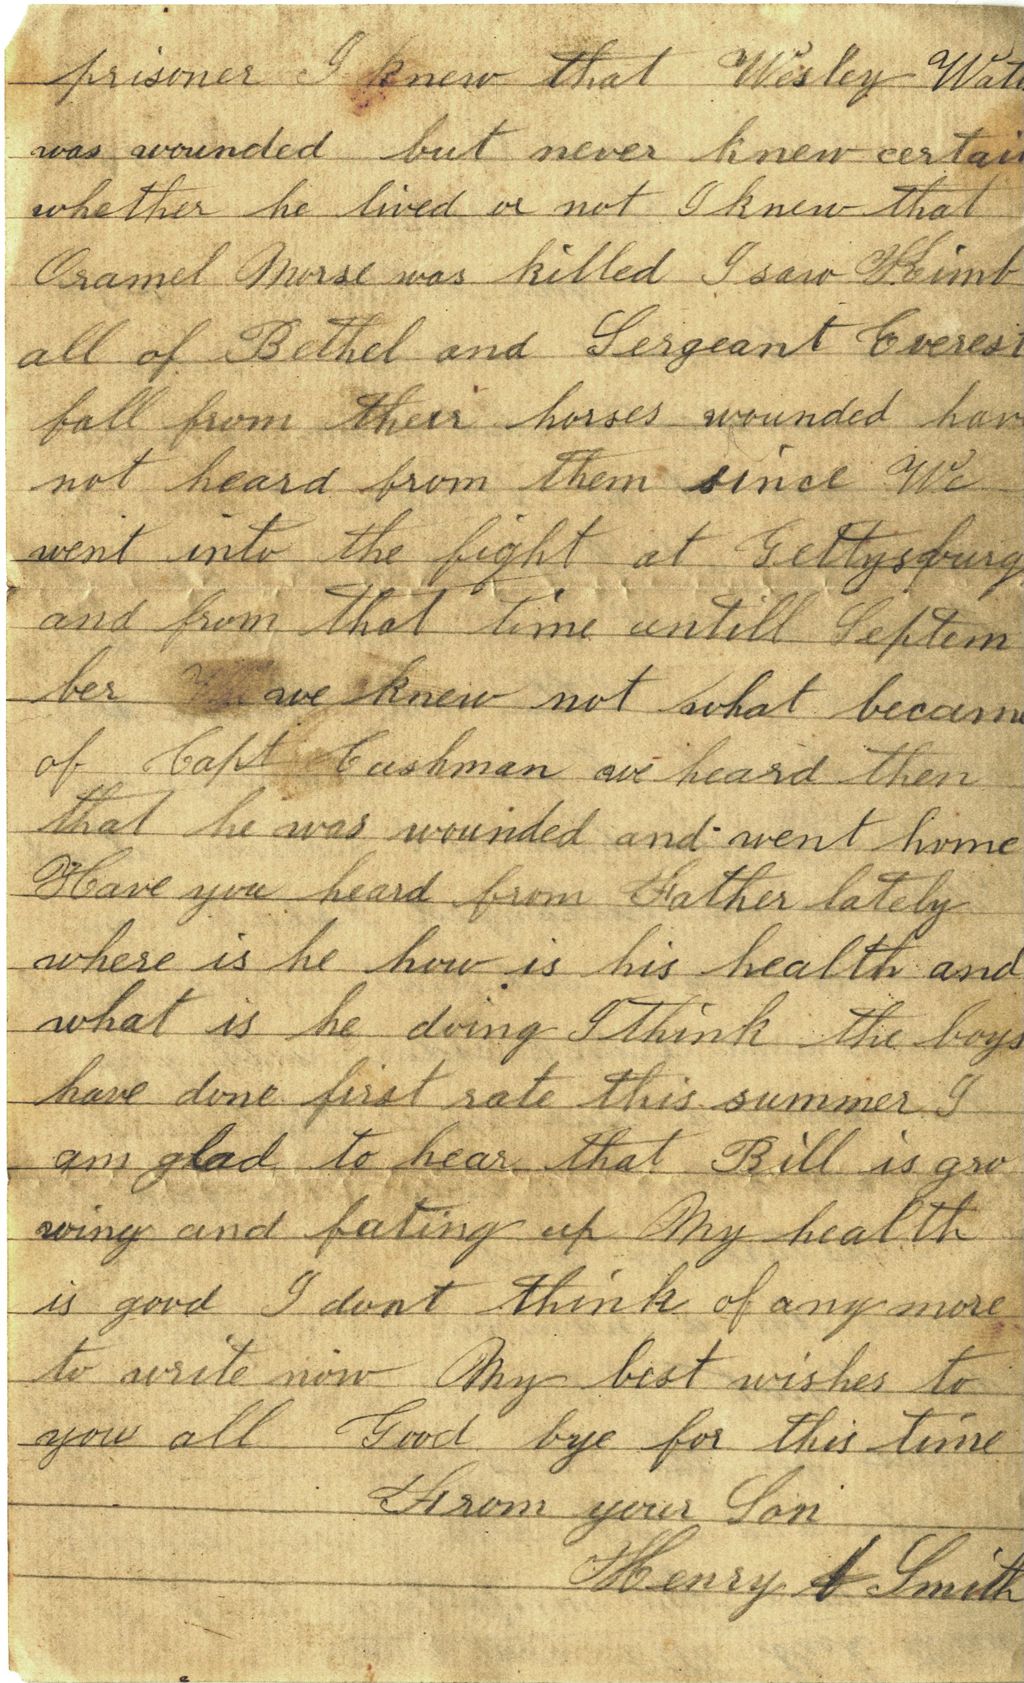 prisoner I knew that Wesley Wat
was wounded but never knew certain
whether he lived or not I knew that
Oramel Morse was killed I saw Kimb
all of Bethel and Sergeant Everest
fall from their horses wounded hav
not heard from them since We
went into the fight at Gettysburg
and from that time untill Septem
ber we knew not what became
of Capt Cushman we heard then
that he was wounded and went home
Have you heard from Father lately
where is he how is his health and
what is he doing I think the boys
have done first rate this summer I
am glad to hear that Bill is gro
wing and fating up My health
is good I dont think of any more
to write now My best wishes to
you all Good bye for this time
From your Son
Henry Smith